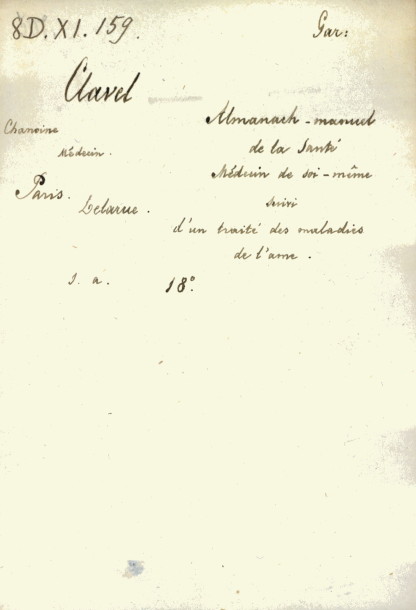 8D.XI.159.
Gar:
Clavel
Chanoine
Médecin.
Paris.
Delarue.
s. a.
18°.
Almanach-manuel
de la Santé
Médecin de soi-même
suivi
d'un traité des maladies
de l'ame.